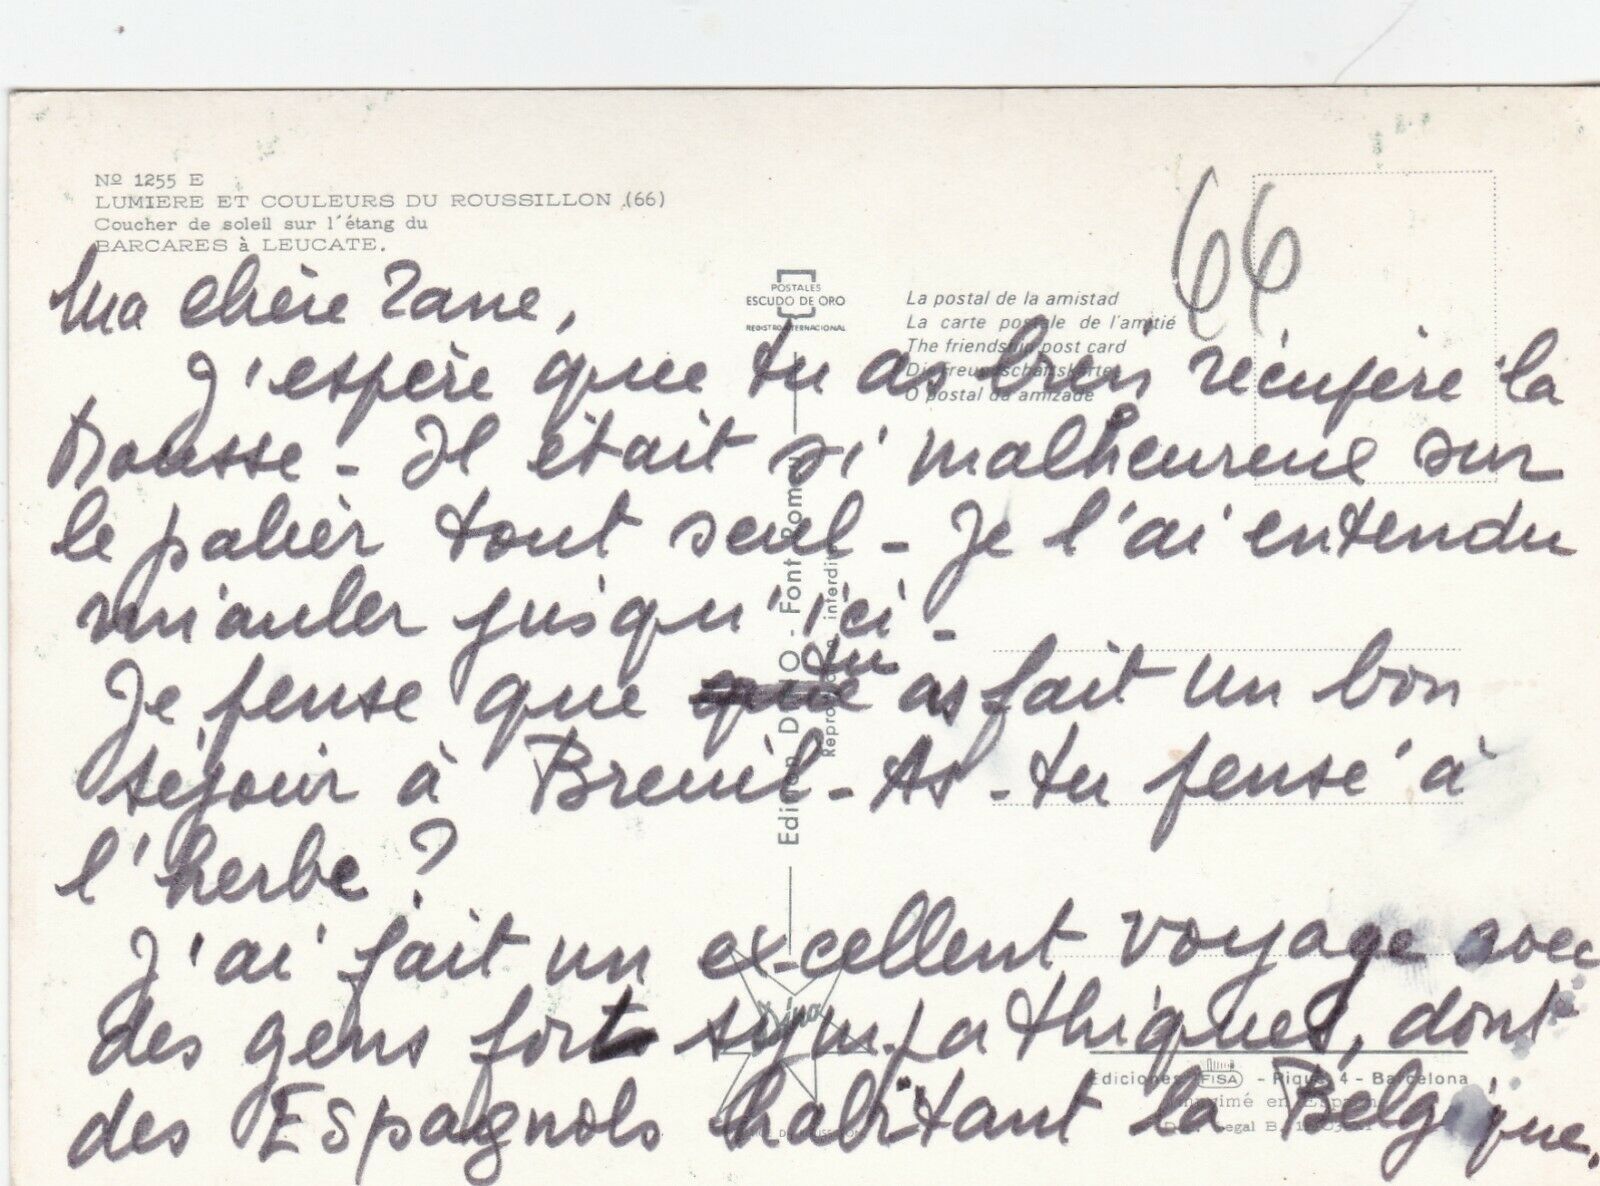 Nº 1255 E
LUMIERE ET COULEURS DU ROUSSILLON (66)
Coucher de soleil sur l'étang du
BARCARES à LEUCATE.
66
POSTALES
ESCUDO DE ORO
REGISTRO INTERNACIONAL
La postal de la amistad
La carte postale de l'amitié
The friendship post card
Die Freundschaftskarte
O postal da amizade
Ma chère Zane,
J'espère que tu as bien récupéré la
Mousse - Il était si malheureux sur
le palier tout seul - Je l'ai entendu
miauler jusqu'ici -
Je pense que tu as fait un bon
séjour à Breuil - As-tu pensé à
l'herbe ?
J'ai fait un ex-cellent voyage avec
des gens fort sympathiques, dont
des Espagnols habitant la Belgique.
Edition DINO - Font-Romeu
Reproduction interdite
Dino
Ediciones FISA - Rique 4 - Barcelona
Imprimé en Espagne
Legal B.